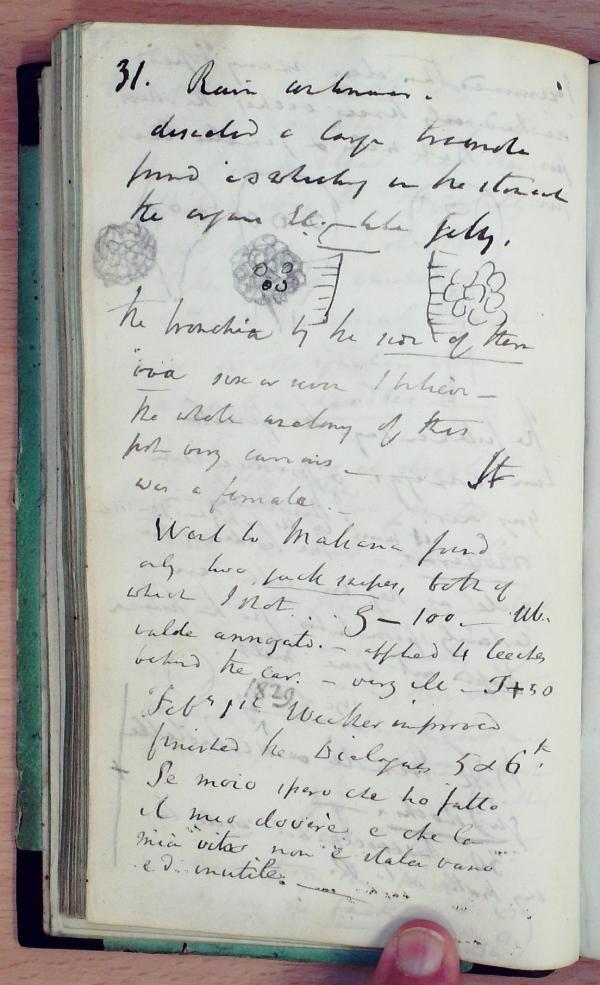 31. Rain as before.
dissected a large
found in the stomach
the organs like jelly.
the bronchia by the side of them
ova six or seven I believe —
the whole anatomy of this
fish very curious. — It
was a female. —
Went to Maliana found
only two jack snipes, both of
which I shot. . — 100. —
valde annogato. — applied 4 leeches
behind the ear. — very ill — T + 50
1829
Feby 1st Weather improved
finished the Dialogues 5 & 6th.
Se moio spero che ho fatto
il mio dovere e che la
mia vita non è stata vano
ed inutile. —